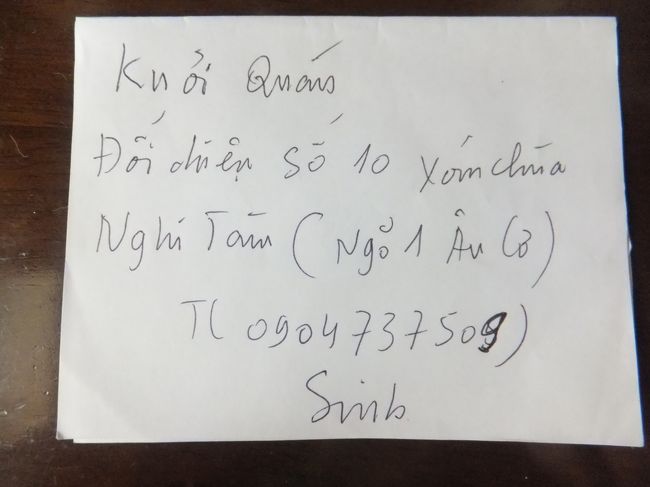 Khởi Quán
Đối diện số 10 xóm chùa
Nghi Tàm (Ngõ 1 Âu Cơ)
T( 0904737509)
Sinh